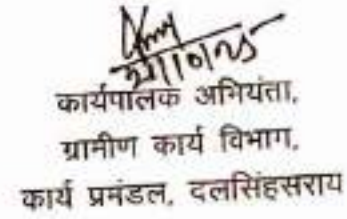 कार्यपालक अभियंता,
ग्रामीण कार्य विभाग,
कार्य प्रमंडल, दलसिंहसराय